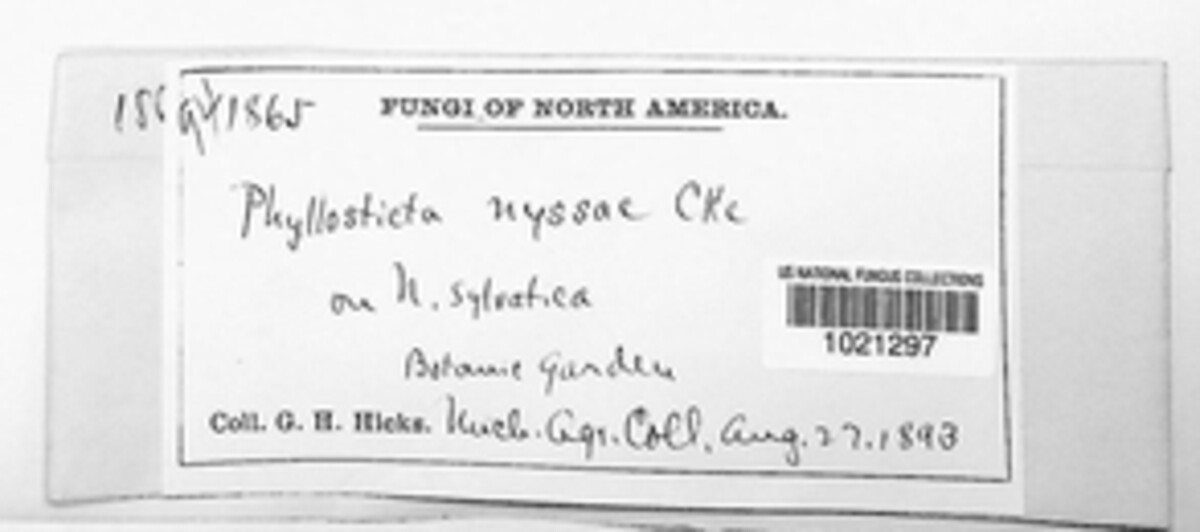 1865
FUNGI OF NORTH AMERICA.
Phyllosticta nyssae CKe
on N. sylvatica
US NATIONAL FUNGUS COLLECTIONS
1021297
Botanic Garden
Coll. G. H. Hicks. Mich. Agr. Coll. Aug. 27. 1893